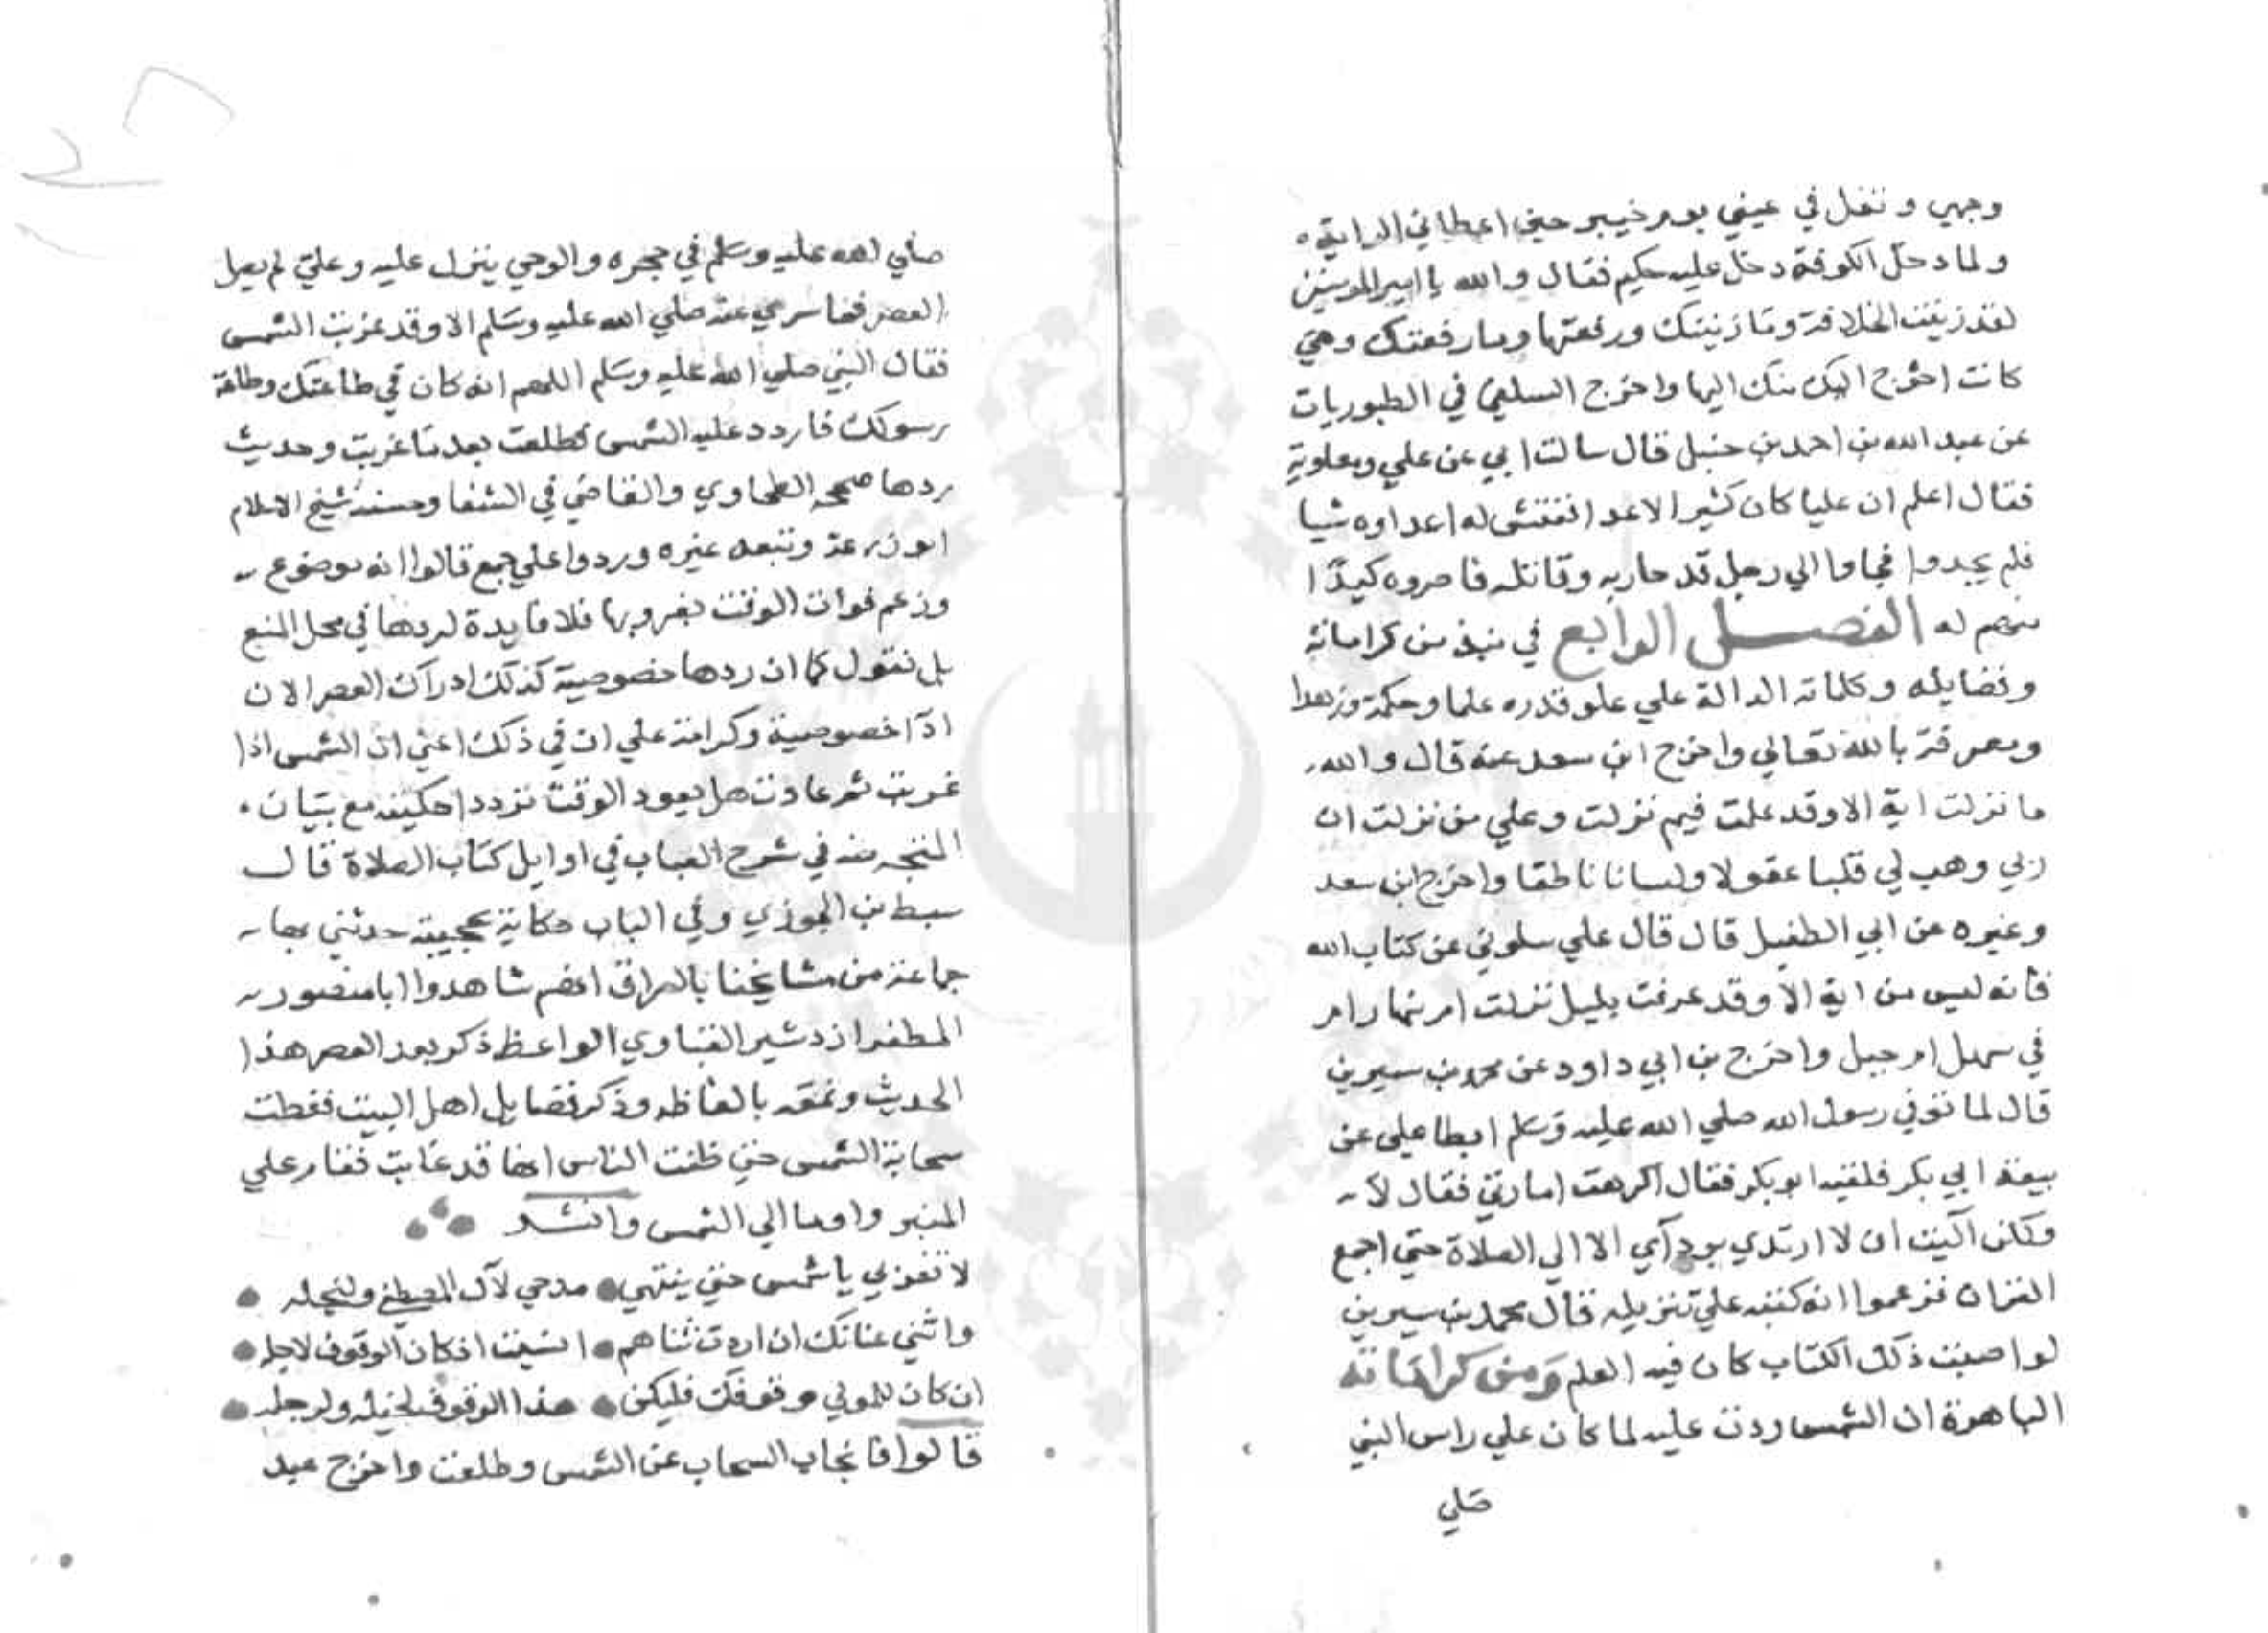 وجهي وتفل في عيني يوم خيبر حين اعطاني الراية
ولما دخل الكوفة دخل عليه حكيم فقال والله يا امير المومنين
لقد زينت الخلافة وما زينتك ورفعتها وما رفعتك وهي
كانت احوج اليك منك اليها واخرج السلفي في الطيوريات
عن عبد الله بن احمد بن حنبل قال سالت ابي عن علي ومعاوية
فقال اعلم ان عليا كان كثير الاعدا ففتش له اعداوه شيا
فلم يجدوا فجاوا الي رجل قد حاربه وقاتله فاطروه كيدًا
منهم له الفصل الرابع في نبذ من كراماته
وفضايله وكلماته الدالة علي علو قدره علما وحكمة وزهدا
ومعرفة بالله تعالي واخرج ابن سعد عنه قال والله
ما نزلت اية الا وقد علمت فيم نزلت وعلي من نزلت ان
ربي وهب لي قلبا عقولا ولسانا ناطقا واخرج ابن سعد
وغيره عن ابي الطفيل قال قال علي سلوني عن كتاب الله
فانه ليس من اية الا وقد عرفت بليل نزلت ام نهار ام
في سهل ام جبل واخرج بن ابي داود عن محمد بن سيرين
قال لما توفي رسول الله صلي الله عليه وسلم ابطا علي عن
بيعة ابي بكر فلقيه ابو بكر فقال اكرهت امارتي فقال لا
ولكن آليت ان لا ارتدي بردآي الا الي الصلاة حتي اجمع
القران فزعموا انه كتبه علي تنزيله قال محمد بن سيرين
لو اصبت ذلك الكتاب كان فيه العلم ومن كراماته
الباهرة ان الشمس ردت عليه لما كان علي راس النبي
صلي
صلي الله عليه وسلم في حجره والوحي ينزل عليه وعلي لم يصل
العصر فما سري عنه صلي الله عليه وسلم الا وقد غربت الشمس
فقال النبي صلي الله عليه وسلم اللهم انه كان في طاعتك وطاعة
رسولك فاردد عليه الشمس فطلعت بعد ما غربت وحديث
ردها صححه الطحاوي والقاضي في الشفا وحسنه شيخ الاسلام
ابو زرعة وتبعه غيره وردوا علي جمع قالوا انه موضوع
وزعم فوات الوقت بغروبها فلا فايدة لردها في محل المنع
بل نقول كما ان ردها خصوصية كذلك ادراك العصر الان
ادآ خصوصية وكرامة علي ان في ذلك اعني ان الشمس اذا
غربت ثم عادت هل يعود الوقت تردد احكيته مع بيان
المتجه منه في شرح العباب في اوايل كتاب الصلاة قال
سبط بن الجوزي وفي الباب حكاية عجيبة حدثني بها
جماعة من مشايخنا بالعراق انهم شاهدوا ابا منصور
المظفر ازدشير القباوي الواعظ ذكر بعد العصر هذا
الحديث ونمقه بالفاظه وذكر فضايل اهل البيت فغطت
سحابة الشمس حتي ظنت الناس انها قد غابت فقام علي
المنبر واوما الي الشمس وانشد
لا تغربي يا شمس حتي ينتهي مدحي لآل المصطفي ولنجله
واثني عنانك ان اردت ثناهم انسيت اذ كان الوقوف لاجله
ان كان للمولي وقوفك فليكن هذا الوقوف لخيله ولرجله
قالوا فانجاب السحاب عن الشمس وطلعت واخرج عبد